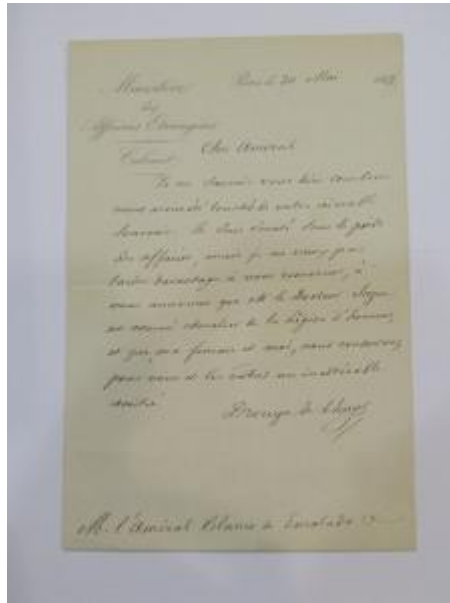 Ministère Paris le 20 Mai 185
des
Affaires Etrangères
Cabinet Cher Amiral
Je ne saurais vous dire combien
nous avons été touchés de votre aimable
souvenir. Je suis écrasé sous le poids
des affaires, mais je ne veux pas
tarder davantage à vous remercier, à
vous annoncer que M. le Docteur
est nommé chevalier de la Légion d'honneur
et que, ma femme et moi, nous conservons
pour vous et les vôtres une inaltérable
amitié.
Drouyn de Lhuys
M. l'Amiral de